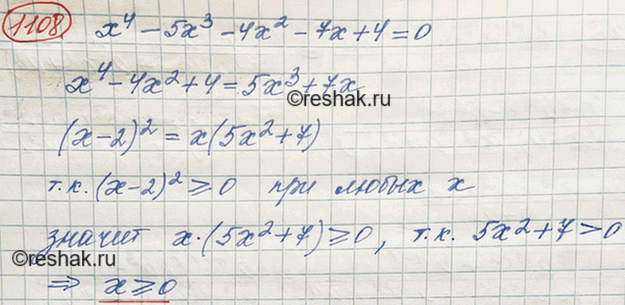 1108 x⁴ - 5x³ - 4x² - 7x + 4 = 0
x⁴ - 4x² + 4 = 5x³ + 7x
©reshak.ru
(x - 2)² = x(5x² + 7)
т.к. (x - 2)² ≥ 0 при любых x
значит x·(5x² + 7) ≥ 0, т.к. 5x² + 7 > 0
©reshak.ru
⇒ x ≥ 0